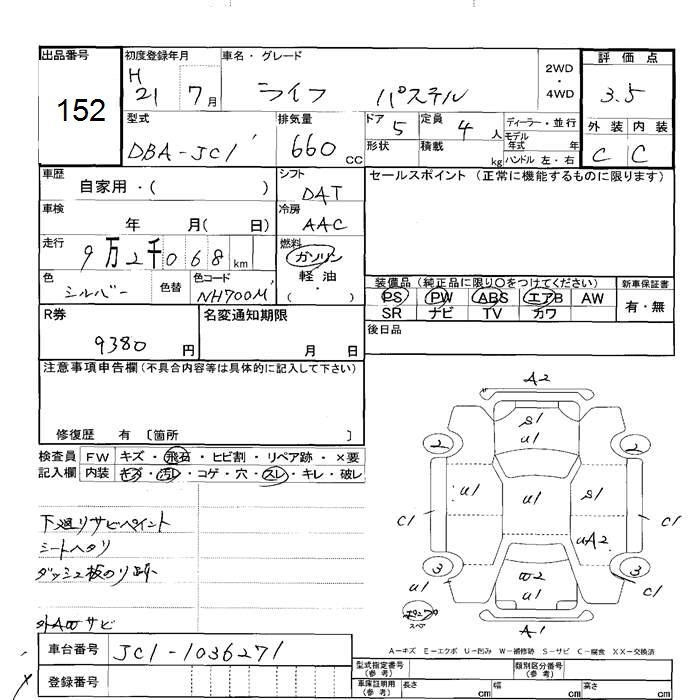 出品番号 152
初度登録年月 H 21 7月
車名・グレード ライフ パステル
2WD ・ 4WD
評価点 3.5
型式 DBA-JC1
排気量 660 cc
ドア 5 定員 4 人
形状 積載 kg
ディーラー・並行
モデル年式 年
ハンドル 左・右
外装 内装
C C
車歴 自家用・( )
シフト DAT
セールスポイント (正常に機能するものに限ります)
車検 年 月( 日)
冷房 AAC
走行 9万2千068 km
燃料 ガソリン 軽油 ・ ( )
色 シルバー 色替
色コード NH700M
装備品 (純正品に限り○をつけてください) 新車保証書
PS PW ABS エアB AW 有・無
SR ナビ TV カワ
R券 9380 円
名変通知期限 月 日
後日品
注意事項申告欄 (不具合内容等は具体的に記入して下さい)
修復歴 有 〔箇所 〕
検査員 FW キズ・飛石・ヒビ割・リペア跡・×要
記入欄 内装 キズ・汚レ・コゲ・穴・スレ・キレ・破レ
下廻りサビペイント
シートヘタリ
ダッシュ板のり跡
サビ
A2
S1
U1
2 2
U1 U1 S1
C1 C1
UA2
3 3
W2
U1
U1 C1
スペア
A1
A-キズ E-エクボ U-凹み W-補修跡 S-サビ C-腐食 XX-交換済
車台番号 JC1-1036271
登録番号
型式指定番号 (参考) 類別区分番号 (参考)
車庫証明用 (参考) 長さ cm 幅 cm 高さ cm